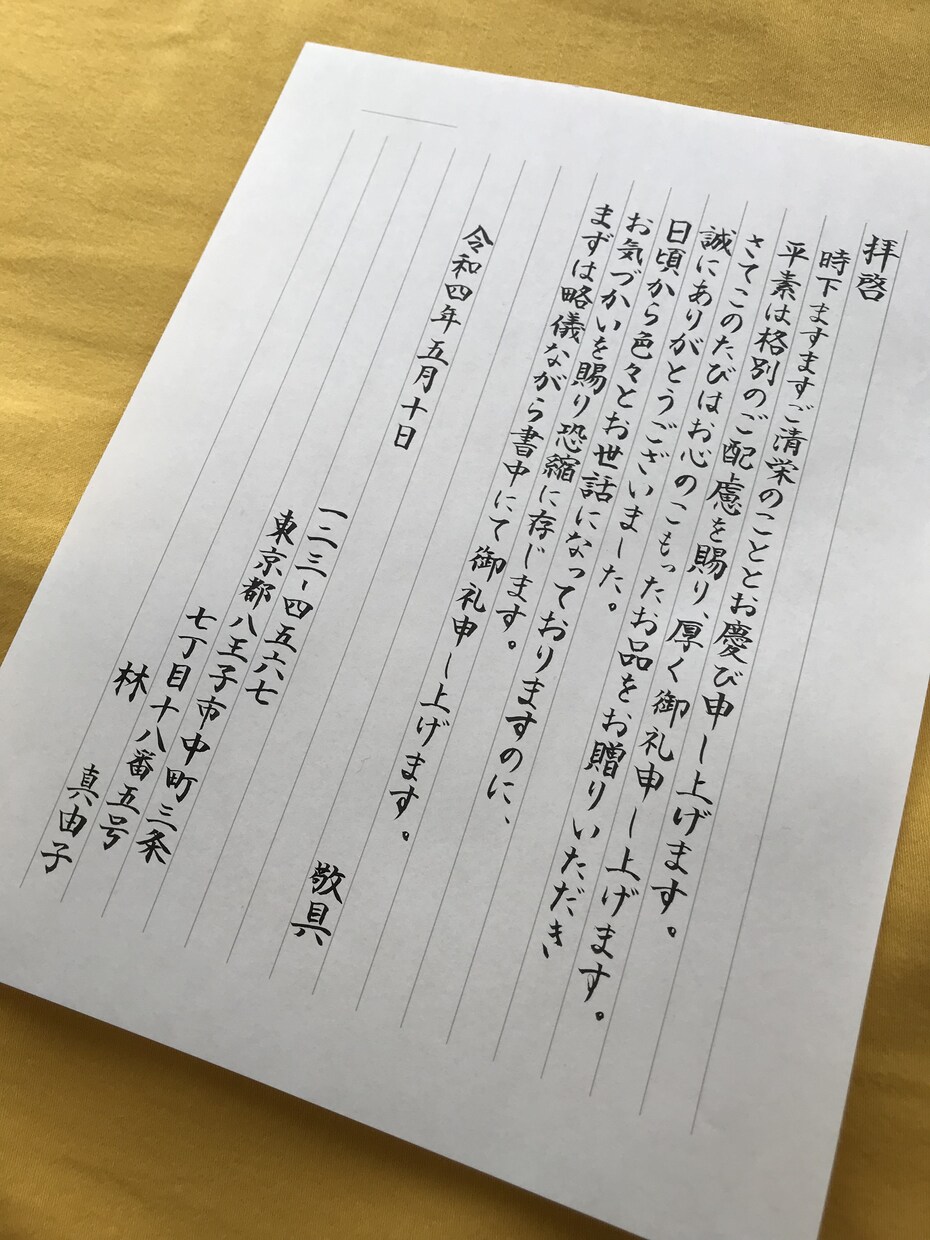 拝啓
時下ますますご清栄のこととお慶び申し上げます。
平素は格別のご配慮を賜り、厚く御礼申し上げます。
さてこのたびはお心のこもったお品をお贈りいただき
誠にありがとうございました。
日頃から色々とお世話になっておりますのに、
お気づかいを賜り恐縮に存じます。
まずは略儀ながら書中にて御礼申し上げます。
敬具
令和四年五月十日
一二三-四五六七
東京都八王子市中町三条
七丁目十八番五号
林 真由子